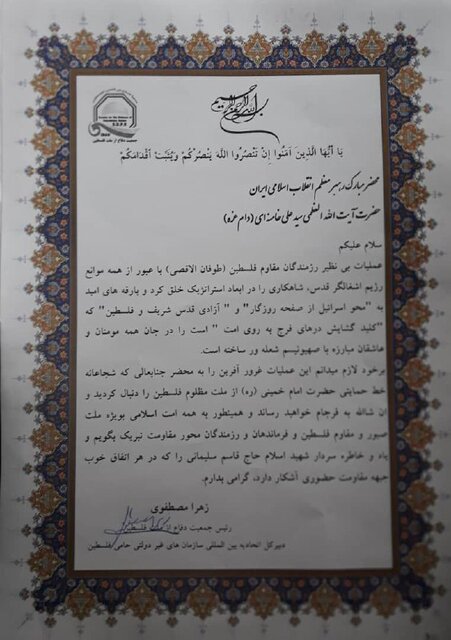 بسم الله الرحمن الرحیم
Society for the Defense of Palestinian Nation
S.D.P.N
جمعیت دفاع از ملت فلسطین
یَا أَیُّهَا الَّذِینَ آمَنُوا إِنْ تَنْصُرُوا اللَّهَ یَنْصُرْکُمْ وَیُثَبِّتْ أَقْدَامَکُمْ
محضر مبارک رهبر معظم انقلاب اسلامی ایران
حضرت آیت الله العظمی سید علی خامنه ای (دام عزه)
سلام علیکم
عملیات بی نظیر رزمندگان مقاوم فلسطین (طوفان الاقصی) با عبور از همه موانع
رژیم اشغالگر قدس، شاهکاری را در ابعاد استراتژیک خلق کرد و بارقه های امید
به "محو اسرائیل از صفحه روزگار" و " آزادی قدس شریف و فلسطین" که
"کلید گشایش درهای فرج به روی امت " است را در جان همه مومنان و
عاشقان مبارزه با صهیونیسم شعله ور ساخته است.
برخود لازم میدانم این عملیات غرور آفرین را به محضر جنابعالی که شجاعانه
خط حمایتی حضرت امام خمینی (ره) از ملت مظلوم فلسطین را دنبال کردید و
ان شالله به فرجام خواهید رساند و همینطور به همه امت اسلامی بویژه ملت
صبور و مقاوم فلسطین و فرماندهان و رزمندگان محور مقاومت تبریک بگویم و
یاد و خاطره سردار شهید اسلام حاج قاسم سلیمانی را که در هر اتفاق خوب
جبهه مقاومت حضوری آشکار دارد، گرامی بدارم.
زهرا مصطفوی
رئیس جمعیت دفاع از ملت فلسطین
دبیرکل اتحادیه بین المللی سازمان های غیر دولتی حامی فلسطین